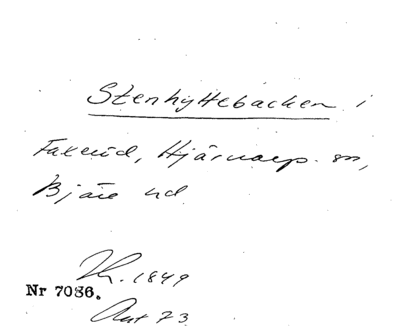 Stenhyttebacken i
Faxeröd, Hjärnarp sn,
Bjäre hd
Th. 1849
Nr 7086.
Ant 73